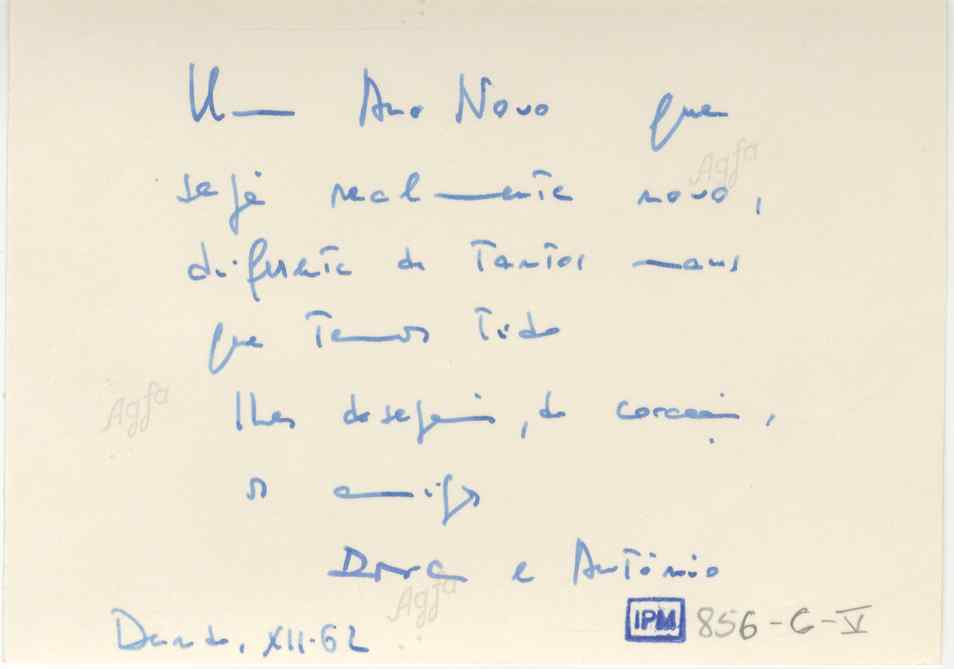 Um Ano Novo que
seja realmente novo,
diferente de tantos maus
que temos tido
lhes desejam, do coração,
os amigos
Dora e António
XII-62
IPM 856-C-V
Agfa
Agfa
Agfa